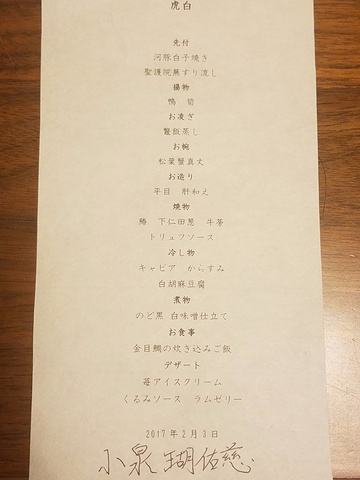 虎白
先付
河豚白子焼き
聖護院蕪すり流し
揚物
鴨 筍
お凌ぎ
鼈飯蒸し
お椀
松葉蟹真丈
お造り
平目 肝和え
焼物
鰆 下仁田葱 牛蒡
トリュフソース
冷し物
キャビア からすみ
白胡麻豆腐
煮物
のど黒 白味噌仕立て
お食事
金目鯛の炊き込みご飯
デザート
苺アイスクリーム
くるみソース ラムゼリー
2017年2月3日
小泉 瑚佑慈